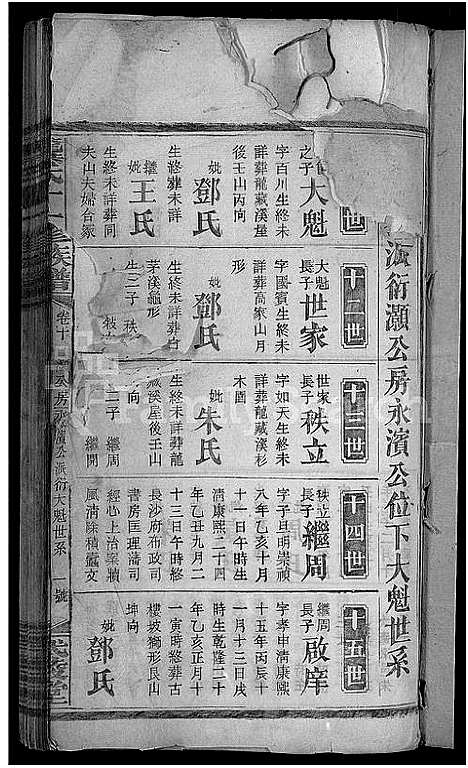 派衍灝公房永濱公位下大魁世系
世
之子大魁
字百川生終未
詳葬龍藏溪屋
後壬山丙向
妣鄧氏
生終葬未詳
繼妣王氏
生終未詳葬同
夫山夫婦合冢
十二世
大魁長子世家
字國賓生終未
詳葬高家山月
形
妣鄧氏
生終未詳葬白
茅溪龜形
生二子 秩
枝
十三世
世家長子秩立
字如天生終未
詳葬龍藏溪杉
木園
妣朱氏
生終未詳葬龍
藏溪屋後壬山
向
二子 繼周
繼開
十四世
秩立長子繼周
字子旦明崇禎
八年乙亥十月
十一日午時生
清康熙二十四
年乙丑九月二
十三日午時終
長沙府布政司
書房匡理藩司
經心上治案牘
風清除積蠹文
十五世
繼周長子啟庠
字孝申清康熙
十五年丙辰十
一月十三日戌
時生乾隆二十
年乙亥正月十
一寅時終葬古
樓坡獅形艮山
坤向
妣鄧氏
族譜
卷十
房永濱公派衍大魁世系
一號